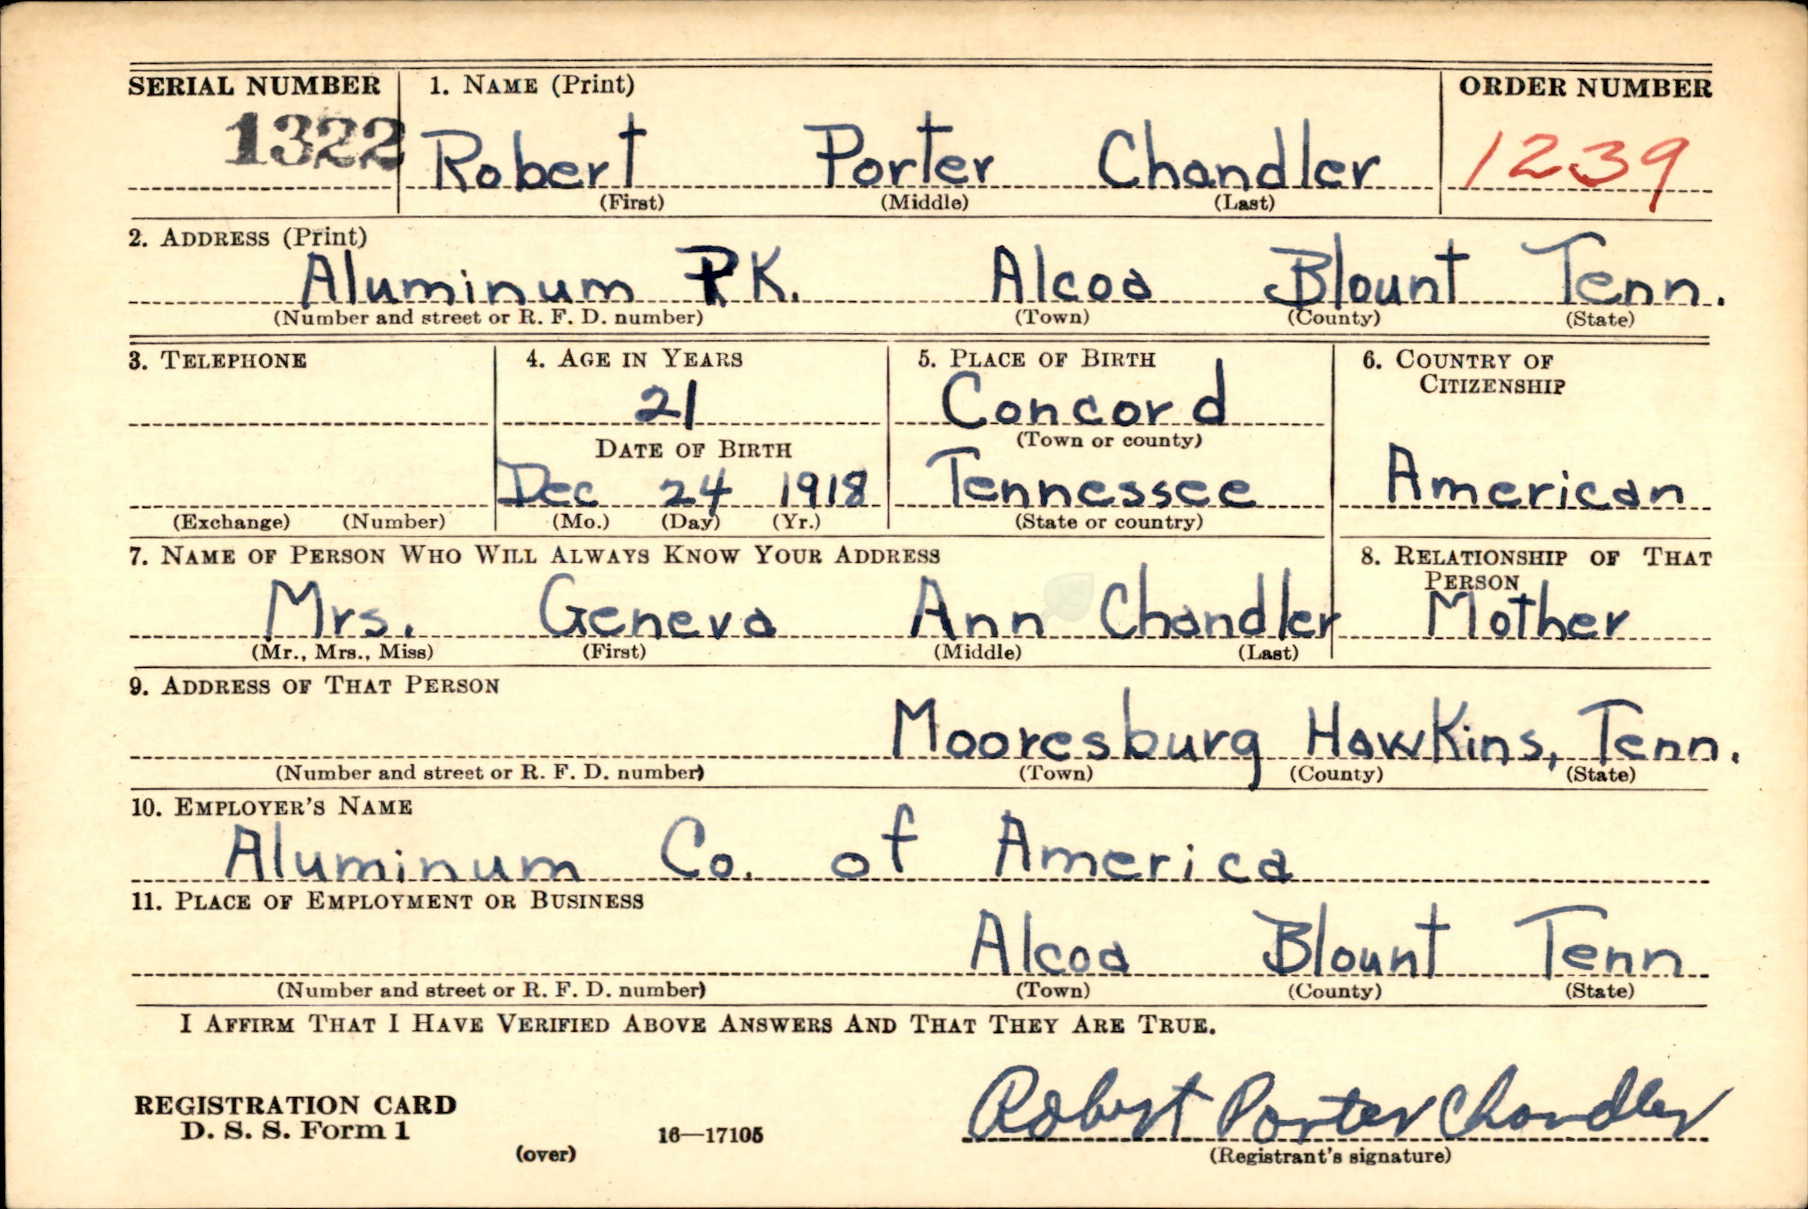 SERIAL NUMBER 1. NAME (Print) ORDER NUMBER
1322 Robert Porter Chandler 1239
(First) (Middle) (Last)
2. ADDRESS (Print)
Aluminum PK. Alcoa Blount Tenn.
(Number and street or R. F. D. number) (Town) (County) (State)
3. TELEPHONE 4. AGE IN YEARS 5. PLACE OF BIRTH 6. COUNTRY OF
CITIZENSHIP
21 Concord
DATE OF BIRTH (Town or county)
Dec 24 1918 Tennessee American
(Exchange) (Number) (Mo.) (Day) (Yr.) (State or country)
7. NAME OF PERSON WHO WILL ALWAYS KNOW YOUR ADDRESS 8. RELATIONSHIP OF THAT
PERSON
Mrs. Geneva Ann Chandler Mother
(Mr., Mrs., Miss) (First) (Middle) (Last)
9. ADDRESS OF THAT PERSON
Mooresburg Hawkins, Tenn.
(Number and street or R. F. D. number) (Town) (County) (State)
10. EMPLOYER'S NAME
Aluminum Co. of America
11. PLACE OF EMPLOYMENT OR BUSINESS
Alcoa Blount Tenn
(Number and street or R. F. D. number) (Town) (County) (State)
I AFFIRM THAT I HAVE VERIFIED ABOVE ANSWERS AND THAT THEY ARE TRUE.
REGISTRATION CARD
D. S. S. Form 1 Robert Porter Chandler
(over) 16—17105 (Registrant's signature)